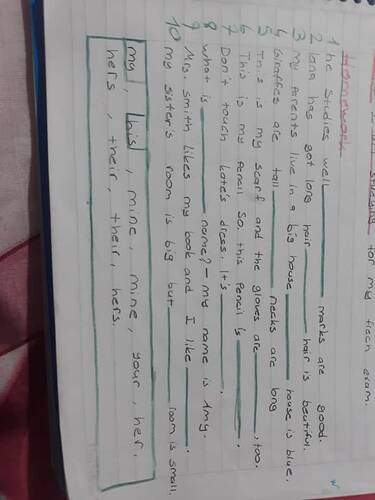 studying for my frech exam.
Homework
1 he studies well ______ marks are good.
2 lana has got long hair ______ hair is beutiful.
3 my parents live in a big house ______ house is blue.
4 Giraffes are tall ______ necks are long
5 This is my scarf and the gloves are ______, too.
6 This is my pencil so this pencil is ______.
7 Don't touch kate's dress. It's ______.
8 what is ______ name? - my name is Amy.
9 Mrs. smith likes my book and I like ______.
10 my sister's room is big but ______ room is small.
my, his, mine, mine, your, her.
hers, their, their, hers.